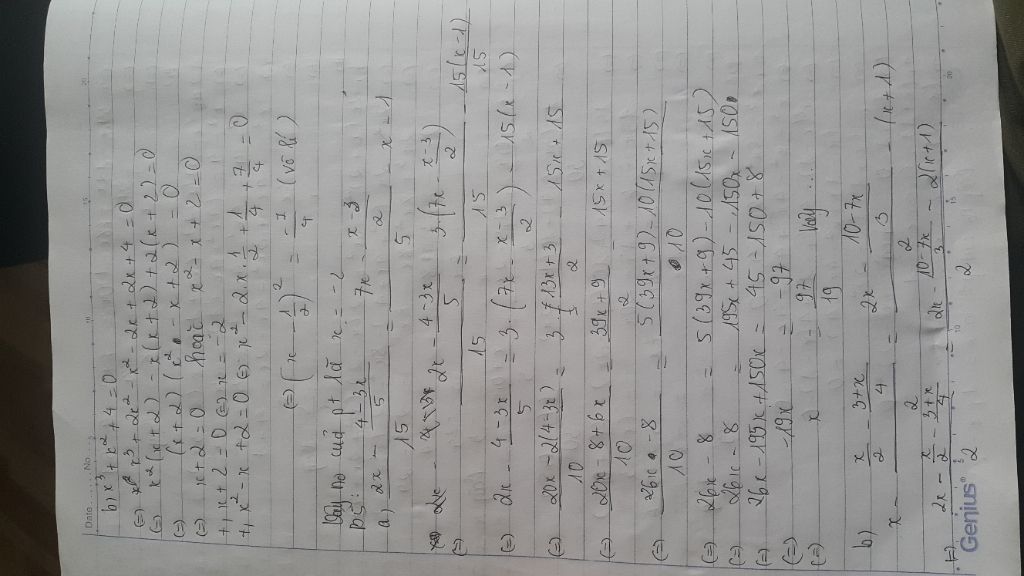 Date......... No.
b) x³ + x² + 4 = 0
(=) x³ + 2x² - x² - 2x + 2x + 4 = 0
(=) x²(x+2) - x(x+2) + 2(x+2) = 0
(=) (x+2)(x² - x + 2) = 0
(=) x+2 = 0 hoặc x² - x + 2 = 0
+, x+2 = 0 (=) x = -2
+, x² - x + 2 = 0 (=) x² - 2x · 1/2 + 1/4 + 7/4 = 0
(=) (x - 1/2)² = -7/4 (vô lý)
Vậy no của pt là x = -2
B5:
a) (2x - (4-3x)/5)/15 = (7x - (x-3)/2)/5 - x - 1
(=) (2x - (4-3x)/5)/15 = 3·(7x - (x-3)/2)/15 - 15(x-1)/15
(=) 2x - (4-3x)/5 = 3·(7x - (x-3)/2) - 15(x-1)
(=) (20x - 2(4-3x))/10 = 3·(13x+3)/2 - 15x + 15
(=) (20x - 8 + 6x)/10 = (39x+9)/2 - 15x + 15
(=) (26x - 8)/10 = (5(39x+9) - 10(15x+15))/10
(=) 26x - 8 = 5(39x+9) - 10(15x+15)
(=) 26x - 8 = 195x + 45 - 150x - 150
(=) 26x - 195x + 150x = 45 - 150 + 8
(=) -19x = -97
(=) x = 97/19 Vậy ....
b) x - (x/2 - (3+x)/4)/2 = (2x - (10-7x)/3)/2 - (x+1)
(=) (2x - x/2 - (3+x)/4)/2 = (2x - (10-7x)/3 - 2(x+1))/2
Genius